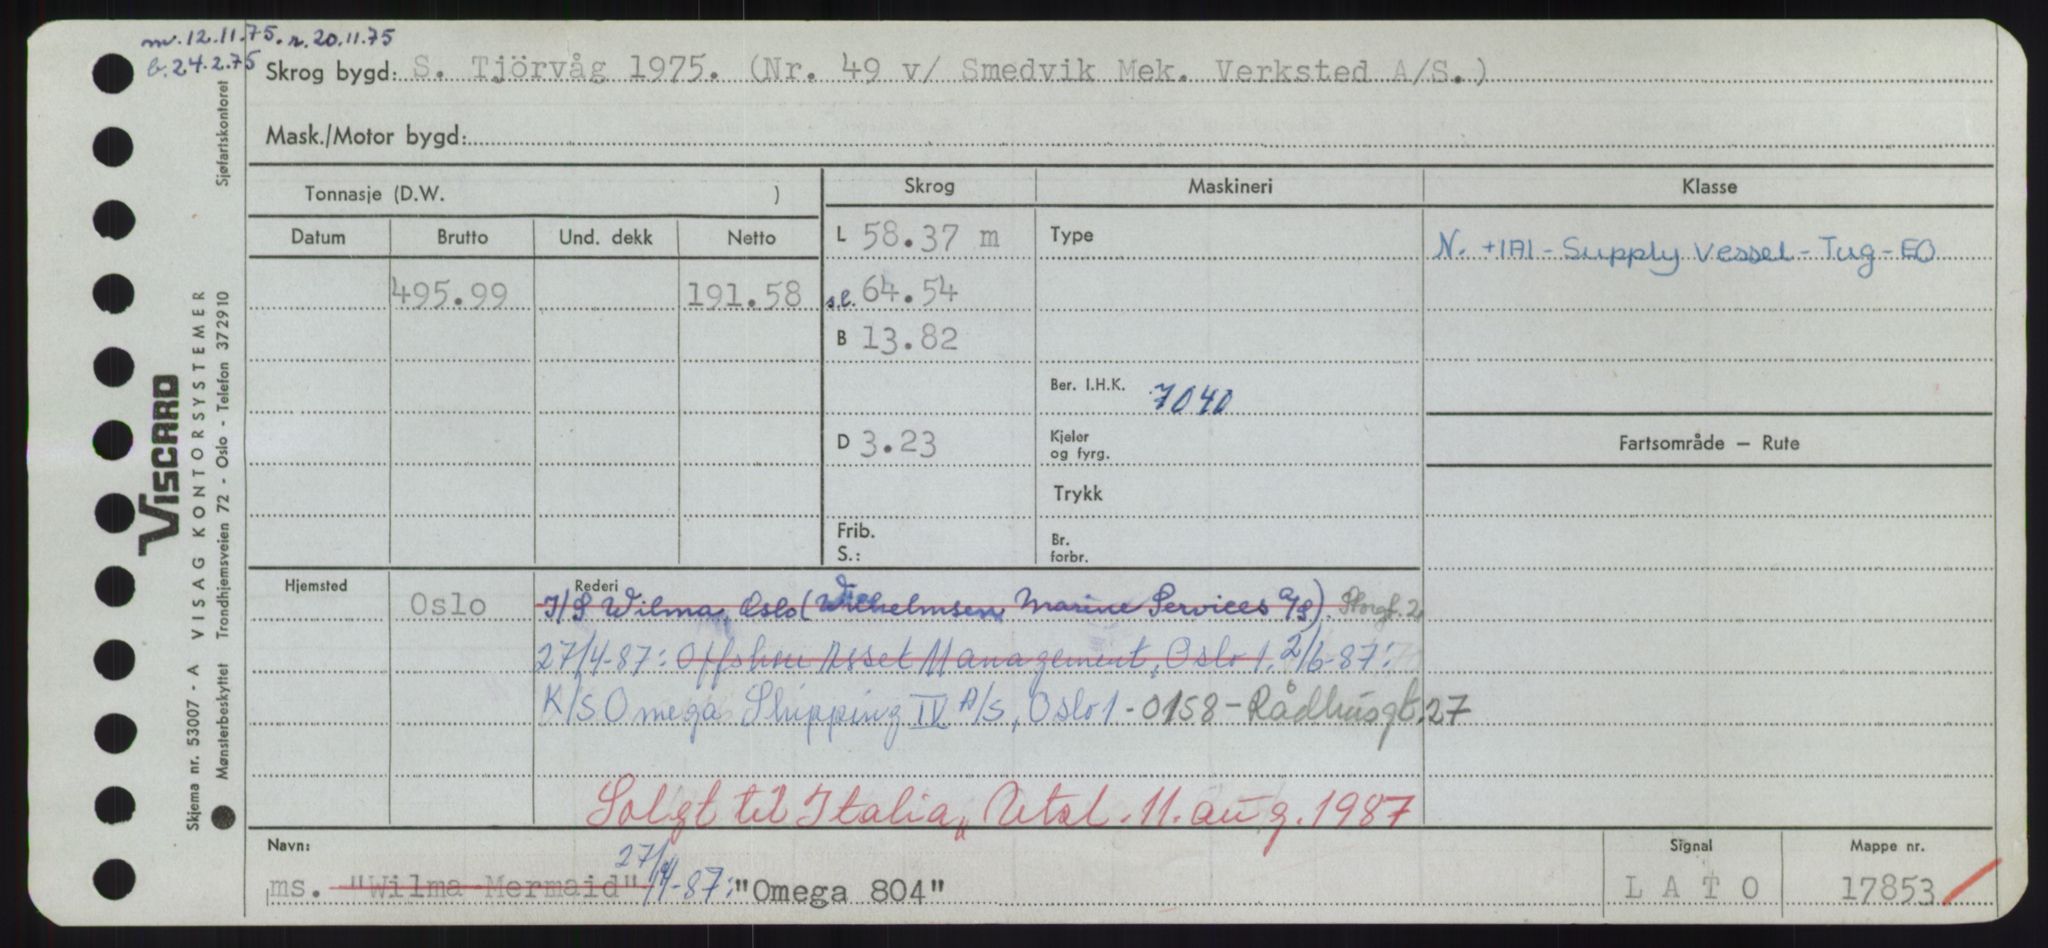 m. 12.11.75. r. 20.11.75
b. 24.2.75
Skrog bygd: S. Tjörvåg 1975. (Nr. 49 v/ Smedvik Mek. Verksted A/S.)
Mask./Motor bygd:
Tonnasje (D.W. )
Skrog
Maskineri
Klasse
Datum Brutto Und. dekk Netto
L 58.37 m
Type
N. +1A1 - Supply vessel - Tug - EO
495.99 191.58
s.l. 64.54
B 13.82
Ber. I.H.K. 7040
D 3.23
Kjeler
og fyrg.
Fartsområde – Rute
Trykk
Frib.
S.:
Br.
forbr.
Hjemsted
Oslo
Rederi
I/S Wilma, Oslo (Wilhelmsen Marine Services A/S). Storgt. 2
27/4-87: Offshore Asset Management, Oslo 1. 2/6-87:
K/S Omega Shipping IV A/S, Oslo 1 - 0158 - Rådhusgt. 27
Solgt til Italia, Utsl. 11. aug. 1987
Navn:
ms. "Wilma Mermaid" 27/4-87: "Omega 804"
Signal
LATO
Mappe nr.
17853
Sjøfartskontoret
VISCARD
VISAG KONTORSYSTEMER
Trondhjemsveien 72 - Oslo - Telefon 372910
Skjema nr. 53007 - A
Mønsterbeskyttet